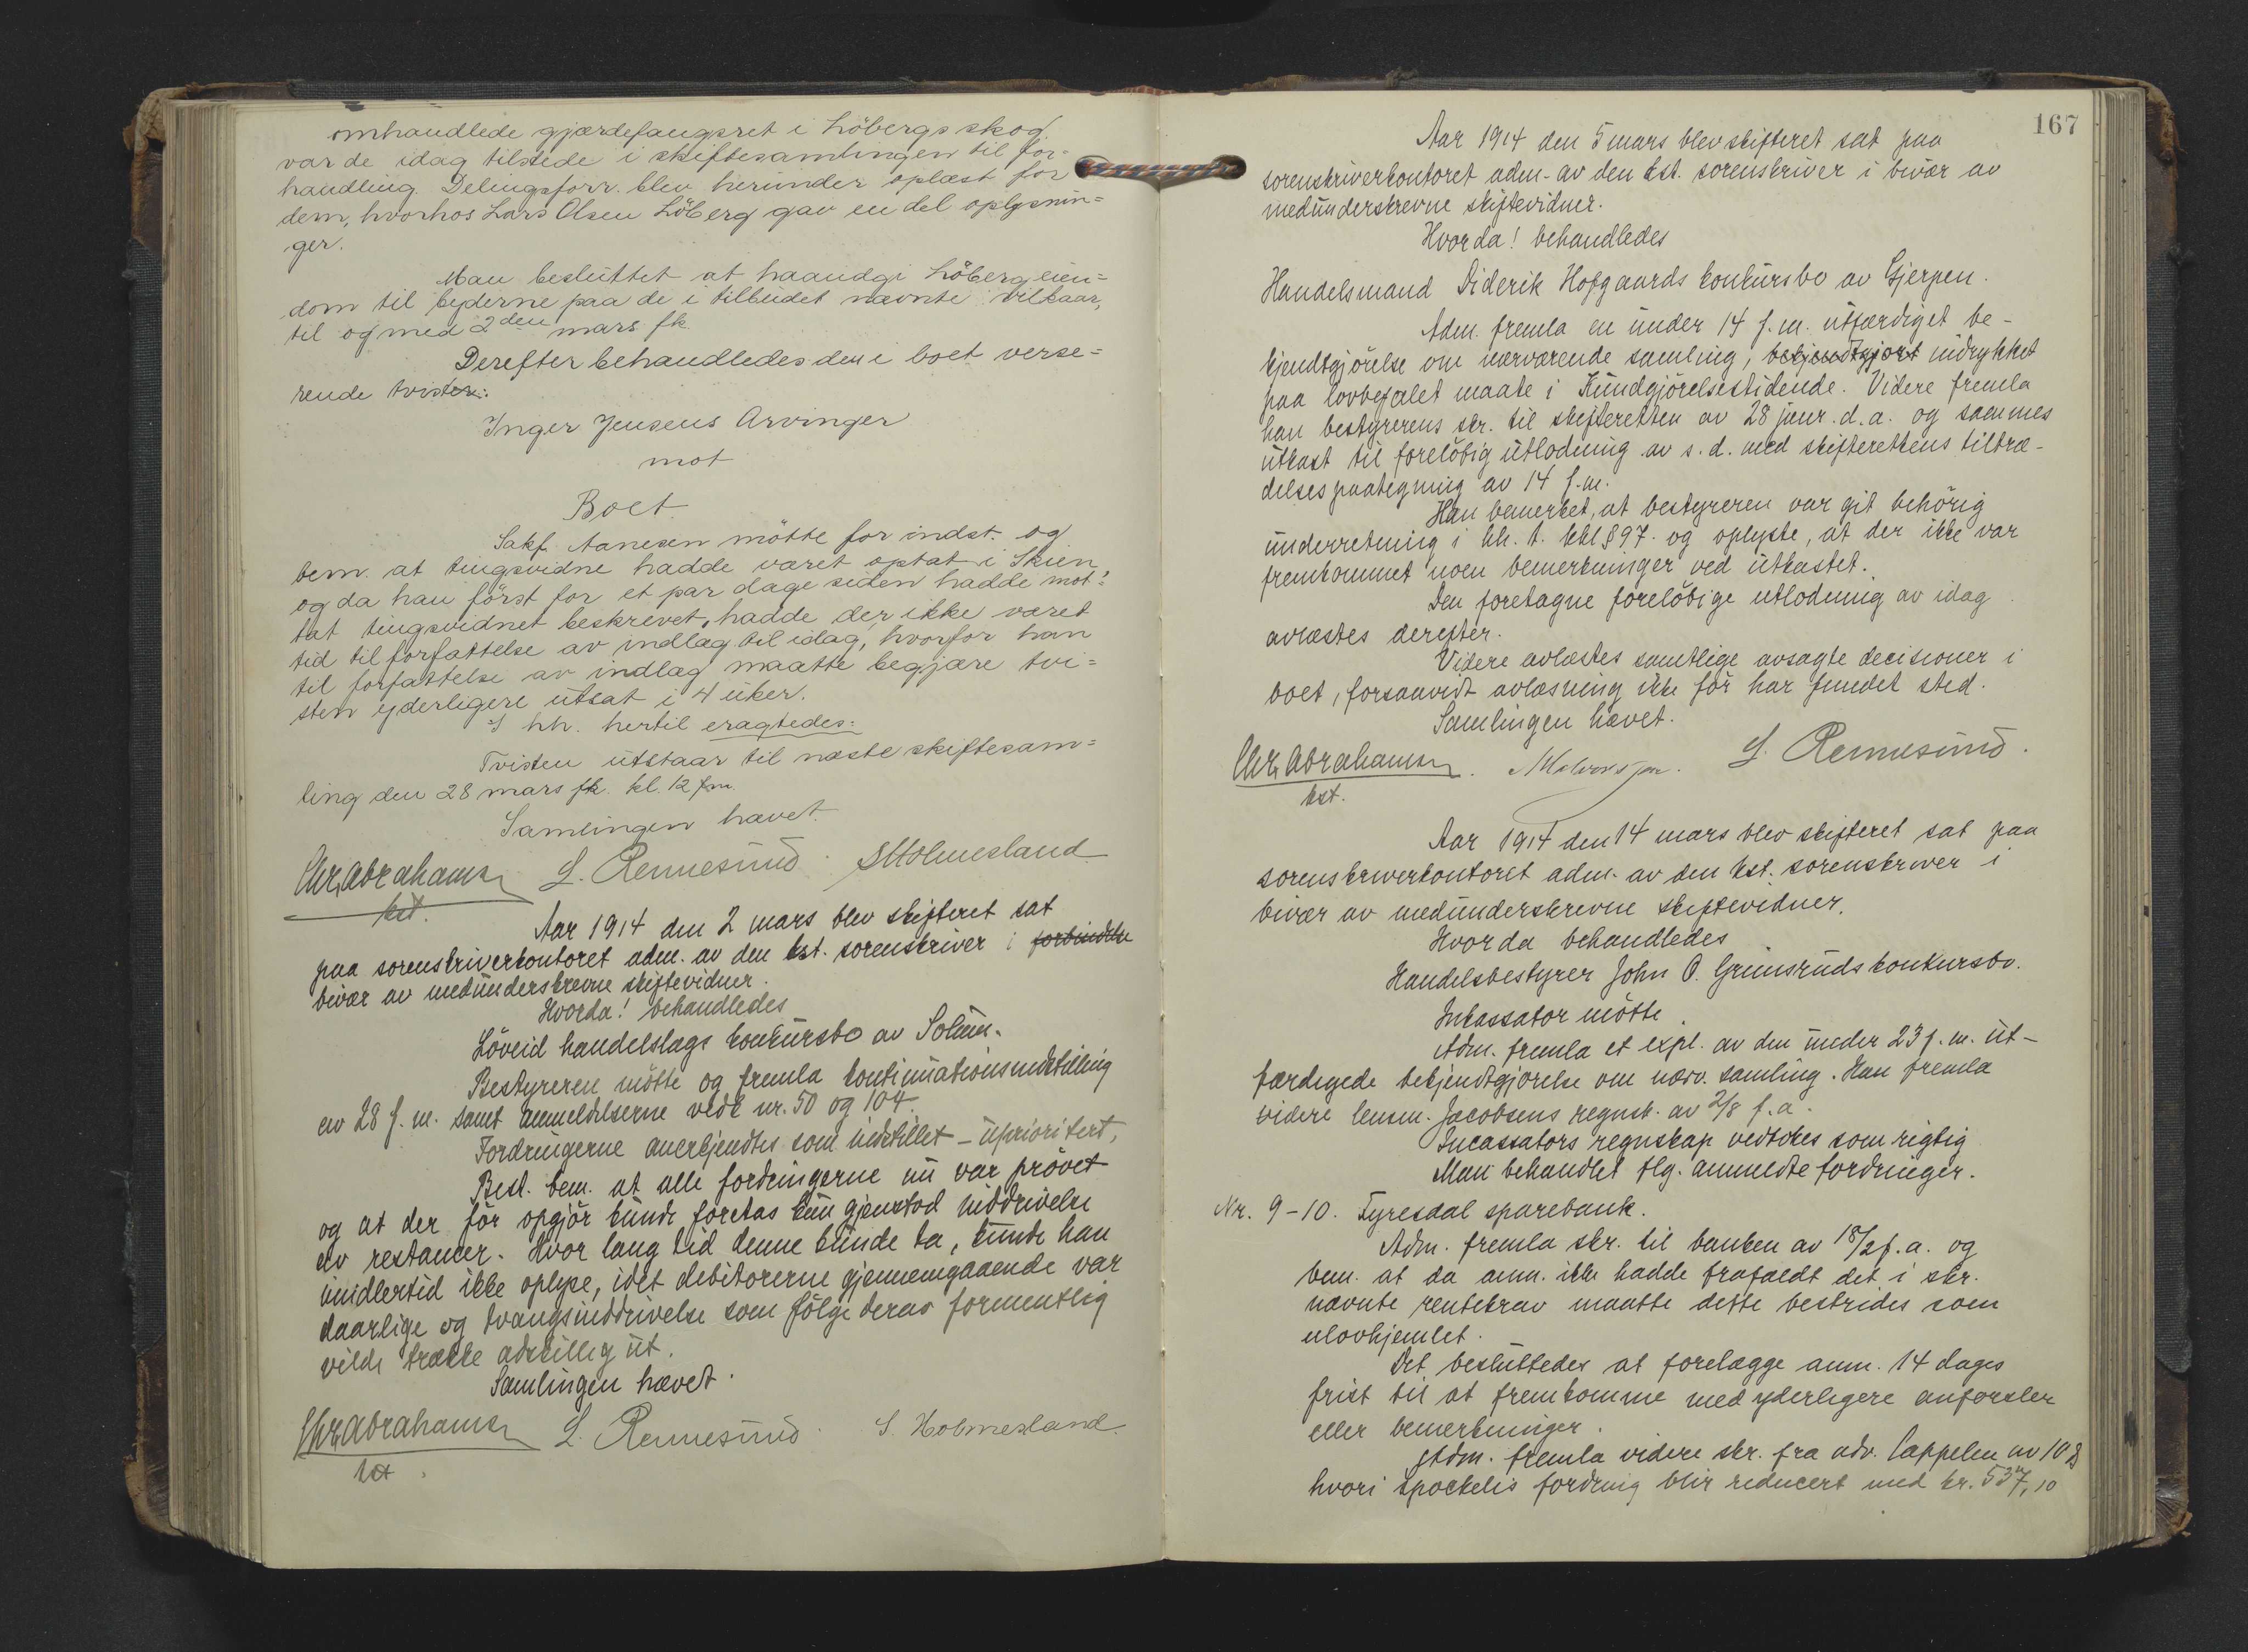 omhandlede gjærdefangsret i Löbergs skog.
var de idag tilstede i skiftesamlingen til for-
handling. Delingsforr. blev herunder oplæst for
dem, hvorhos Lars Olsen Löberg gav en del oplysnin=
ger.
Man besluttet at haandgi Löberg eien=
dom til byderne paa de i tilbudet nævnte vilkaar,
til og med 2den mars fk.
Derefter behandledes den i boet verse=
rende tvister:
Inger Jensens Arvinger
mot
Boet.
Sakf. Aanesen mötte for indst. og
bem. at tingsvidne hadde været optat i Skien,
og da han först for et par dage siden hadde mot=
tat tingsvidnet beskrevet, hadde der ikke været
tid til forfattelse av indlag til idag, hvorfor han
til forfattelse av indlag maatte begjære tvi=
sten yderligere utsat i 4 uker.
I hh. hertil eragtedes:
Tvisten utstaar til næste skiftesam=
ling den 28 mars fk. kl. 12 fm.
Samlingen hævet.
Chr. Abrahamsen L. Rennesund. S Holmesland
kst.
Aar 1914 den 2 mars blev skifteret sat
paa sorenskriverkontoret adm. av den kst. sorenskriver i forbindelse
bivær av medunderskrevne skiftevidner.
Hvorda! behandledes
Löveid handelslags konkursbo av Solum.
Bestyreren mötte og fremla kontinuationsindstilling
av 28 f. m. samt anmeldelserne vedk nr. 50 og 104.
Fordringerne anerkjendtes som indstillet - uprioritert.
Best. bem. at alle fordringerne nu var prövet
og at der för opgjör kunde foretas kun gjenstod inddrivelse
av restancer. Hvor lang tid denne kunde ta, kunde han
imidlertid ikke oplyse, idet debitorerne gjennemgaaende var
daarlige og tvangsinddrivelse som fölge derav formentlig
vilde trække adskillig ut.
Samlingen hævet.
Chr. Abrahamsen L. Rennesund. S. Holmesland.
kst.
167
Aar 1914 den 5 mars blev skifteret sat paa
sorenskriverkontoret adm. av den kst. sorenskriver i bivær av
medunderskrevne skiftevidner.
Hvorda! behandledes
Handelsmand Diderik Hofgaards konkursbo av Gjerpen.
Adm. fremla en under 14 f. m. utfærdiget be-
kjendtgjörelse om nærværende samling, bekjendtgjort indrykket
paa lovbefalet maate i Kundgjörelsestidende. Videre fremla
han bestyrerens skr. til skifteretten av 28 janr. d. a. og sammes
utkast til forelöbig utlodning av s. d. med skifterettens tiltræ-
delsespaategning av 14 f. m.
Han bemerket, at bestyreren var git behörig
underretning i hh. t. kkl § 97. og oplyste, at der ikke var
fremkommet noen bemerkninger ved utkastet.
Den foretagne forelöbige utlodning av idag
avlæstes derefter.
Videre avlæstes samtlige avsagte decisioner i
boet, forsaavidt avlæsning ikke för har fundet sted.
Samlingen hævet.
Chr. Abrahamsen. L. Rennesund.
kst.
Aar 1914 den 14 mars blev skifteret sat paa
sorenskriverkontoret adm. av den kst. sorenskriver i
bivær av medunderskrevne skiftevidner.
Hvorda behandledes
Handelsbestyrer John O. Grimsruds konkursbo.
Inkassator mötte.
Adm. fremla et expl. av den under 23 f. m. ut-
færdigede bekjendtgjörelse om nærv. samling. Han fremla
videre lensm. Jacobsens regnsk. av 2/8 f. a.
Incassators regnskap vedtokes som rigtig
Man behandlet flg. anmeldte fordringer.
Nr. 9-10. Fyresdal sparebank.
Adm. fremla skr. til banken av 18/2 f. a. og
bem. at da anm. ikke hadde frafaldt det i skr.
nævnte rentekrav maatte dette bestrides som
ulovhjemlet.
Det besluttedes at forelægge anm. 14 dages
frist til at fremkomme med yderligere anförsler
eller bemerkninger.
Adm. fremla videre skr. fra adv. Cappelen av
hvori fordring blir reducert med kr. 537,10